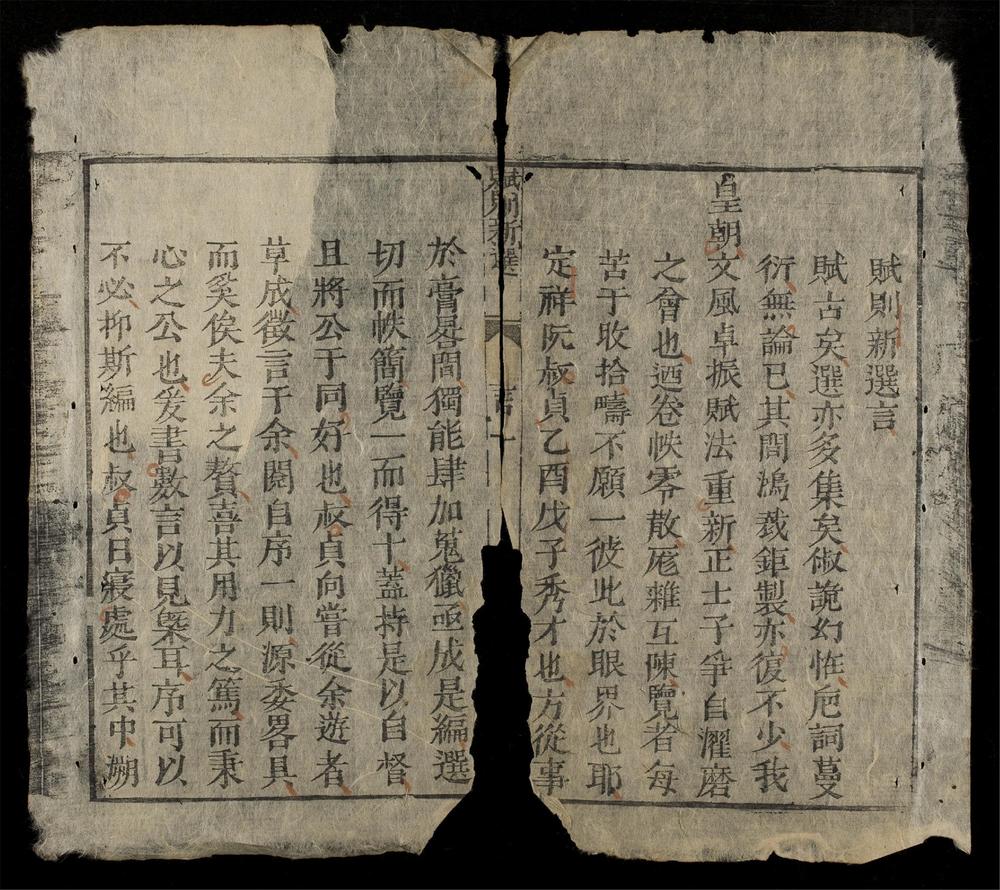 賦則新選言
賦古矣選亦多集矣俶詭幻恠巵詞蔓
衍無論已其間鴻裁鉅製亦復不少我
皇朝文風卓振賦法重新正士子爭自濯磨
之會也迺卷帙零散厖雜互陳覽者每
苦于收拾疇不願一彼此於眼界也耶
定祥阮叔貞乙酉戊子秀才也方從事
賦則新選
言
一
於膏晷間獨能肆加蒐獵亟成是編選
切而帙簡覽一而得十蓋持是以自督
且將公于同好也叔貞向嘗從余遊者
草成徵言于余閱自序一則源委畧具
而奚俟夫余之贅喜其用力之篤而秉
心之公也爰書數言以見槩耳序可以
不必抑斯編也叔貞日寢處乎其中朔